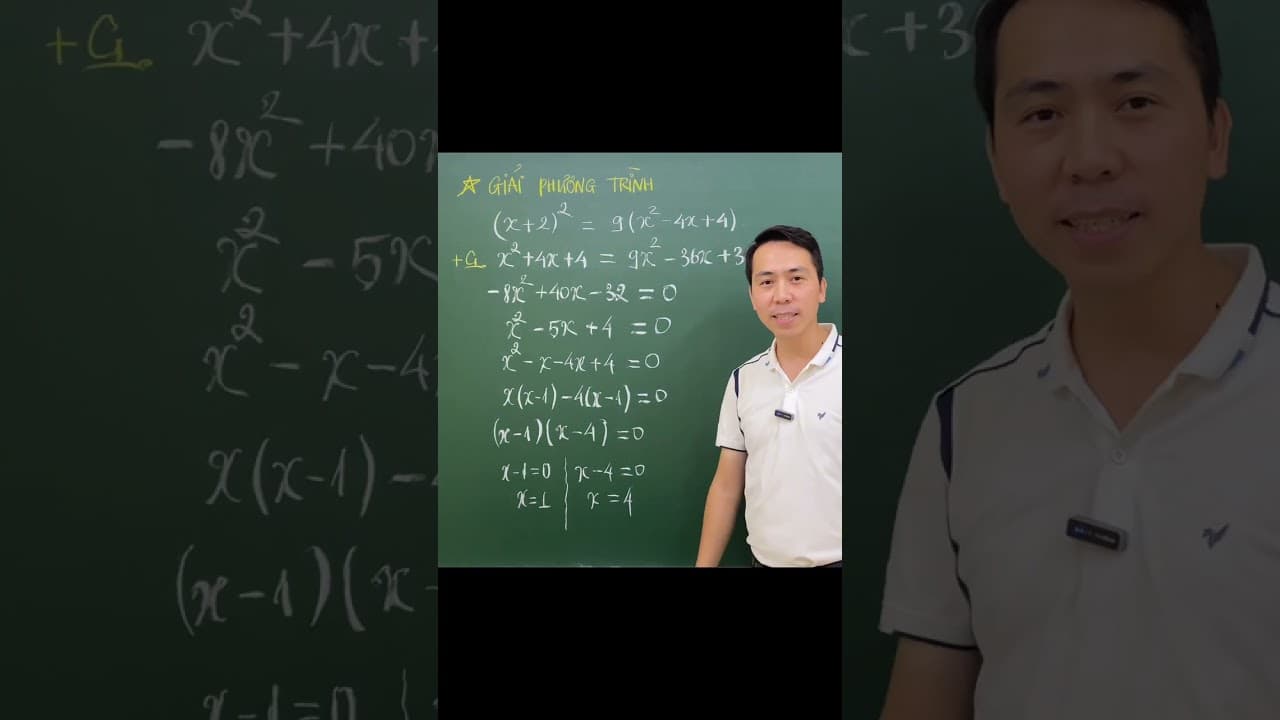 ☆ GIẢI PHƯƠNG TRÌNH
(x+2)² = 9(x²-4x+4)
+G. x²+4x+4 = 9x²-36x+3
-8x²+40x-32=0
x²-5x+4=0
x²-x-4x+4=0
x(x-1)-4(x-1)=0
(x-1)(x-4)=0
x-1=0 | x-4=0
x=1 | x=4